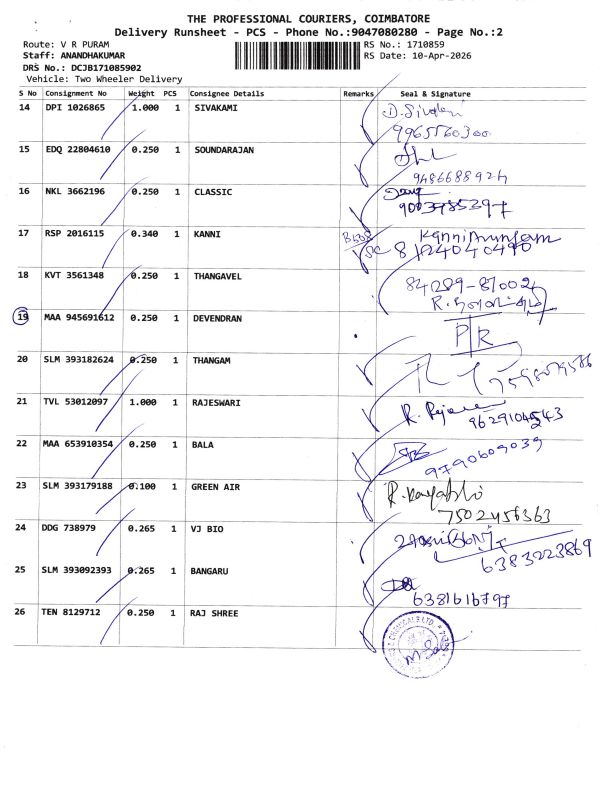 THE PROFESSIONAL COURIERS, COIMBATORE
Delivery Runsheet - PCS - Phone No.:9047080280 - Page No.:2
Route: V R PURAM RS No.: 1710859
Staff: ANANDHAKUMAR RS Date: 10-Apr-2026
DRS No.: DCJB171085902
Vehicle: Two Wheeler Delivery
S No Consignment No Weight PCS Consignee Details Remarks Seal & Signature
14 DPI 1026865 1.000 1 SIVAKAMI
9965560300
15 EDQ 22804610 0.250 1 SOUNDARAJAN
9486688924
16 NKL 3662196 0.250 1 CLASSIC
9003985397
17 RSP 2016115 0.340 1 KANNI
8124040490
18 KVT 3561348 0.250 1 THANGAVEL
84289-81002
19 MAA 945691612 0.250 1 DEVENDRAN
P/R
20 SLM 393182624 0.250 1 THANGAM
21 TVL 53012097 1.000 1 RAJESWARI
22 MAA 653910354 0.250 1 BALA
9790609039
23 SLM 393179188 0.100 1 GREEN AIR
7502456363
24 DDG 738979 0.265 1 VJ BIO
6383223869
25 SLM 393092393 0.265 1 BANGARU
6381616797
26 TEN 8129712 0.250 1 RAJ SHREE